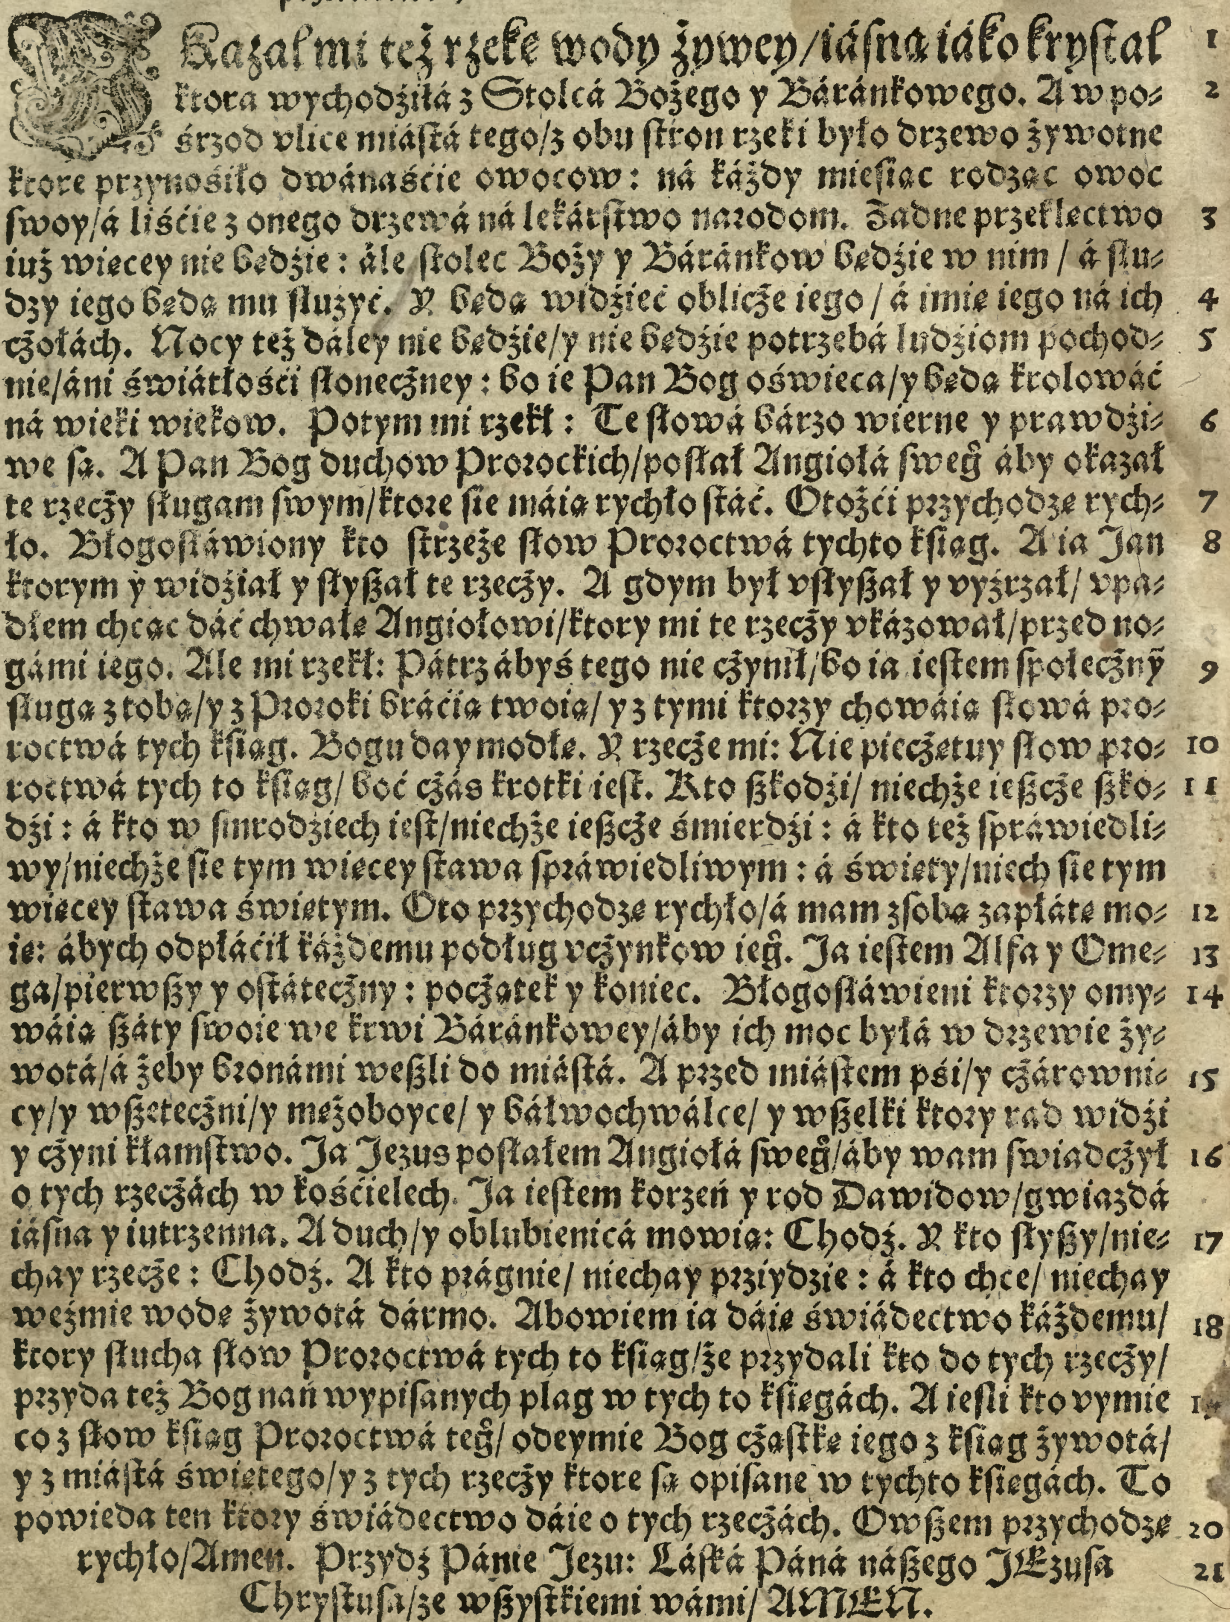 VKazał mi też rzekę wody żywey/iásną iáko krystał 1
ktora wychodźiłá z Stolcá Bożego y Báránkowego. A w po- 2
śrzod vlice miástá tego/z obu stron rzeki było drzewo żywotne
ktore przynośiło dwánaśćie owocow: ná káżdy mieśiąc rodząc owoc
swoy/á liśćie z onego drzewá ná lekárstwo narodom. Żadne przeklęctwo 3
iuż więcey nie będźie: ále stolec Boży y Báránkow będźie w nim / á słu-
dzy iego będą mu służyć. Y będą widźieć oblicże iego / á imię iego ná ich 4
cżołách. Nocy też dáley nie będźie/y nie będźie potrzebá ludźiom pochod- 5
nie/áni świátłośći słonecżney: bo ie Pan Bog oświeca/y będą krolowáć
ná wieki wiekow. Potym mi rzekł: Te słowá bárzo wierne y prawdźi- 6
we są. A Pan Bog duchow Prorockich/posłał Angiołá sweg̃ áby okazał
te rzecży sługam swym/ktore sie máią rychło stáć. Otożći przychodzę rych- 7
ło. Błogosłáwiony kto strzeże słow Proroctwá tychto kśiąg. A ia Jan 8
ktorym y widźiał y słyszał te rzecży. A gdym był vsłyszał y vyźrzał/ vpa-
dłem chcąc dáć chwałę Angiołowi/ktory mi te rzecży vkázował/przed no-
gámi iego. Ale mi rzekł: Pátrz ábyś tego nie cżynił/bo ia iestem społecżny 9
sługa z tobą/y z Proroki bráćią twoią/ y z tymi ktorzy chowáią słowá pro-
roctwá tych kśiąg. Bogu day modłę. Y rzecże mi: Nie piecżętuy słow pro- 10
roctwá tych to kśiąg/ boć cżás krotki iest. Kto szkodźi/ niechże ieszcże szko- 11
dźi: á kto w smrodźiech iest/niechże ieszcże śmierdźi: á kto też spráwiedli-
wy/niechże sie tym więcey stawa spráwiedliwym: á święty/niech sie tym
więcey stawa świętym. Oto przychodzę rychło/á mam zsobą zapłátę mo- 12
ię: ábych odpłáćił káżdemu podług vcżynkow ieg̃. Ja iestem Alfa y Ome- 13
ga/pierwszy y ostátecżny: pocżątek y koniec. Błogosłáwieni ktorzy omy- 14
wáią száty swoie we krwi Báránkowey/áby ich moc byłá w drzewie ży-
wotá/á żeby bronámi weszli do miástá. A przed miástem pśi/y cżárowni- 15
cy/y wszetecżni/y mężoboyce/ y báłwochwálce/ y wszelki ktory rad widźi
y cżyni kłamstwo. Ja Jezus posłałem Angiołá sweg̃/áby wam swiadcżył 16
o tych rzecżách w kośćielech. Ja iestem korzeń y rod Dawidow/gwiazdá
iásna y iutrzenna. A duch/y oblubienicá mowią: Chodź. Y kto słyszy/nie- 17
chay rzecże: Chodź. A kto prágnie/ niechay przyidzie: á kto chce/ niechay
weźmie wodę żywotá dármo. Abowiem ia dáię świádectwo káżdemu/ 18
ktory słucha słow Proroctwá tych to kśiąg/że przydali kto do tych rzecży/
przyda też Bog nań wypisanych plag w tych to kśięgách. A iesli kto vymie
co z słow kśiąg Proroctwá teg̃/ odeymie Bog cżąstkę iego z kśiąg żywotá/
y z miástá świętego/y z tych rzecży ktore są opisane w tychto kśięgách. To
powieda ten ktory świádectwo dáie o tych rzecżách. Owszem przychodzę 20
rychło/Amen. Przydź Pánie Jezu: Łáská Páná nászego JEzusa 21
Chrystusa/ze wszystkiemi wámi/ AMEN.